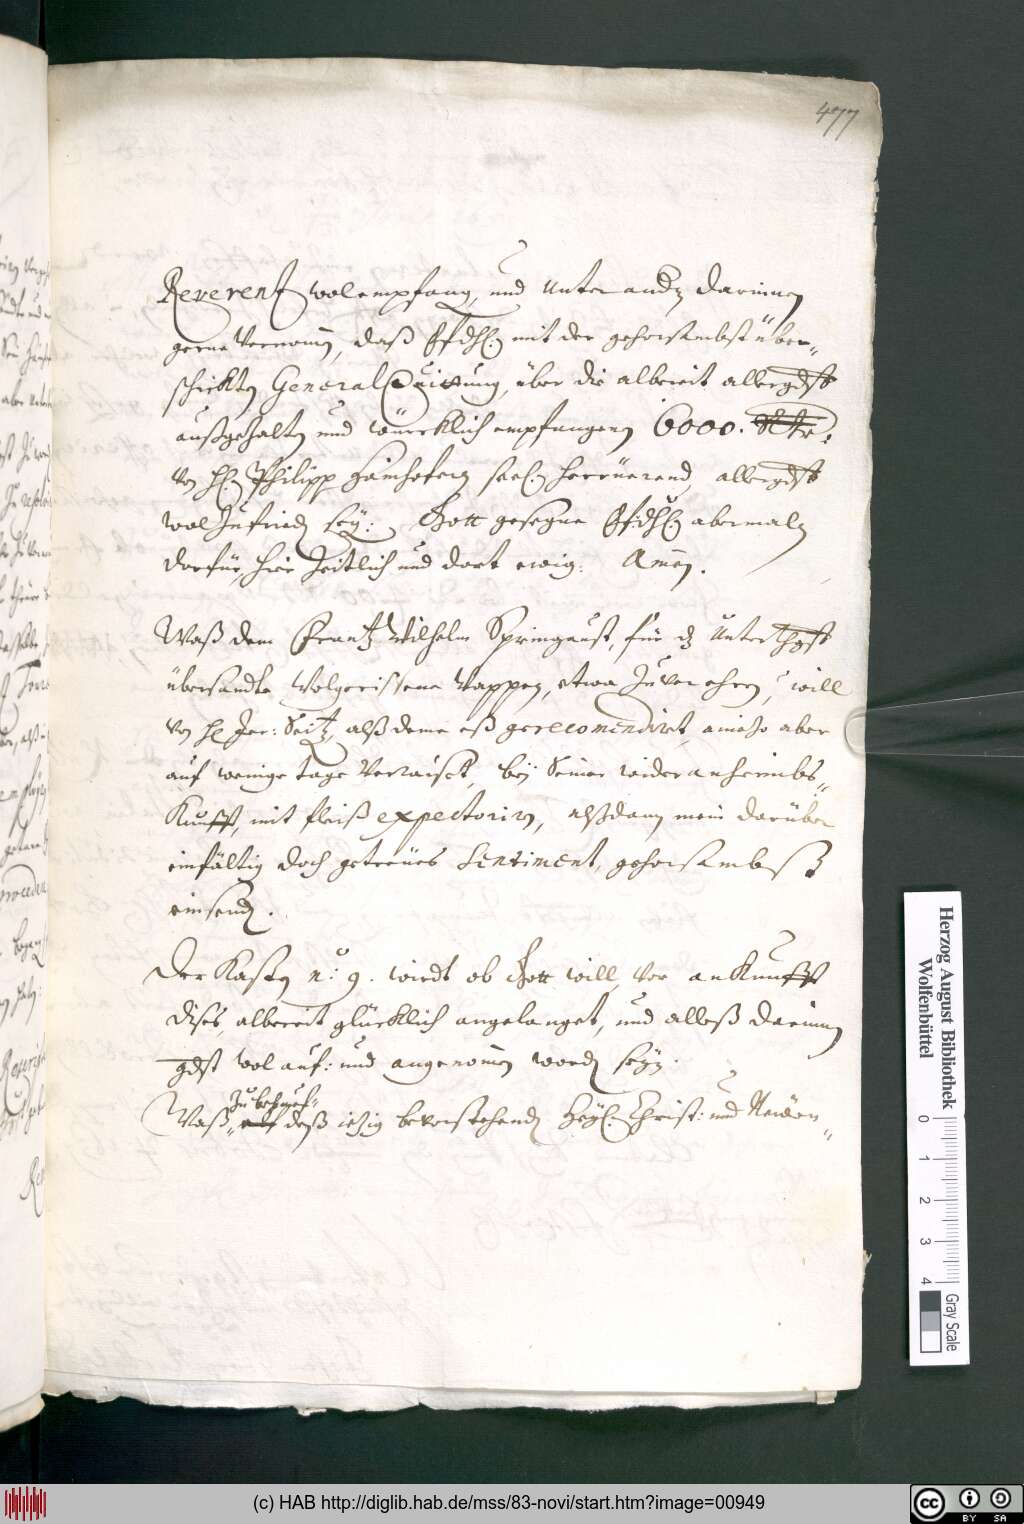 477
Reverentz wol empfang, und unter andz darinnen
gerne vernom̄en, daß Efdhl. mit der gehorsambst über„
schickten General Quittung, über die albereit allergdst
außgehalten und würcklich empfangenen 6000. Rthr:
von Hl. Philipp Hainhofern seel. herrüerend, allergdst
wol Zufried sey: Gott gesegne Efdhl abermaln
dorfür, hier Zeitlich und dort ewig. Amen.
Waß dem Frantz Wilhelm Springaust, für dz unterthgst
übersandte Wappen, etwa Zuverehren, will
von H Jer: Seitz, alß deme eß gerecomendiret, anieho aber
auf wenige tage verraiset, bey Seiner wideranheimbs„
Kunfft, mit fleiß expectoriren, alßdann mein darüber
einfältig doch getreües Sentiment, gehorsambst
einsend.
Der Kasten n: 9. wirdt ob Gott will, vor ankunfft
dises, albereit glücklich angelanget, und alleß darinnen
gdst wol auf: und angenom̄en word seyn.
Zu behuef„
Waß„ deß ietzig bevorstehend Heyl. Christ: und Newen„
Herzog August Bibliothek
Wolfenbüttel
0 1 2 3 4
Gray Scale
(c) HAB http://diglib.hab.de/mss/83-novi/start.htm?image=00949
cc BY SA